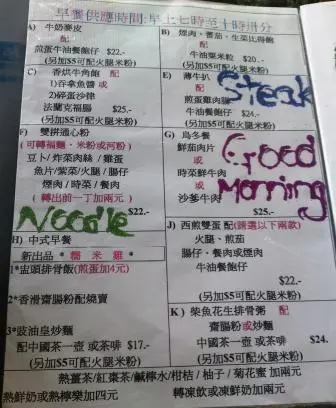 早餐供應時間:早上七時至十時卅分
A) 牛奶麥皮
配
煎蛋牛油餐飽仔 $22.-
(另加$5可配火腿米粉)
B) 煙肉、蕃茄、生菜比得飽
配
牛油粟米粒 $20.-
(另加$5可配火腿米粉)
C) 香烘牛角飽 配
1)吞拿魚醬 或
2)碎蛋沙律
法蘭克福腸 $25.-
(另加$5可配火腿米粉)
E) 薄牛扒
配
煎蛋雞肉腸
牛油餐飽仔 $24.-
(另加$5可配火腿米粉)
Steak
F) 雙拼通心粉
( 可轉福麵‧米粉或河粉 )
豆卜/ 炸菜肉絲 / 雞蛋
魚片/紫菜/火腿 / 腸仔
煙肉 / 時菜 / 餐肉
( 轉出前一丁加兩元 )
$22.-
Noodle
G) 烏冬餐
鮮茄肉片
或
時菜鮮牛肉
或
沙爹牛肉
$25.-
Good
Morning
H) 中式早餐
新出品 * 糯 米 雞 *
1*盅頭排骨飯(煎蛋加4元)
2*香滑齋腸粉配燒賣
3*豉油皇炒麵
配中國茶一壺 或茶啡 $17.-
(另加$5可配火腿米粉)
J) 西煎雙蛋 配(請選以下兩款)
火腿、煎茄
腸仔、餐肉或煙肉
牛油餐飽仔
$22.-
(另加$5可配火腿米粉)
K) 柴魚花生排骨粥 配
齋腸粉或炒麵
中國茶一壺 或茶啡 $24.
(另加$5可配火腿米粉)
熱薑茶/紅棗茶/鹹檸水/柑桔 / 柚子 / 菊花蜜 加兩元
熱鮮奶或熱檸樂加四元 轉凍飲或凍鮮奶加兩元